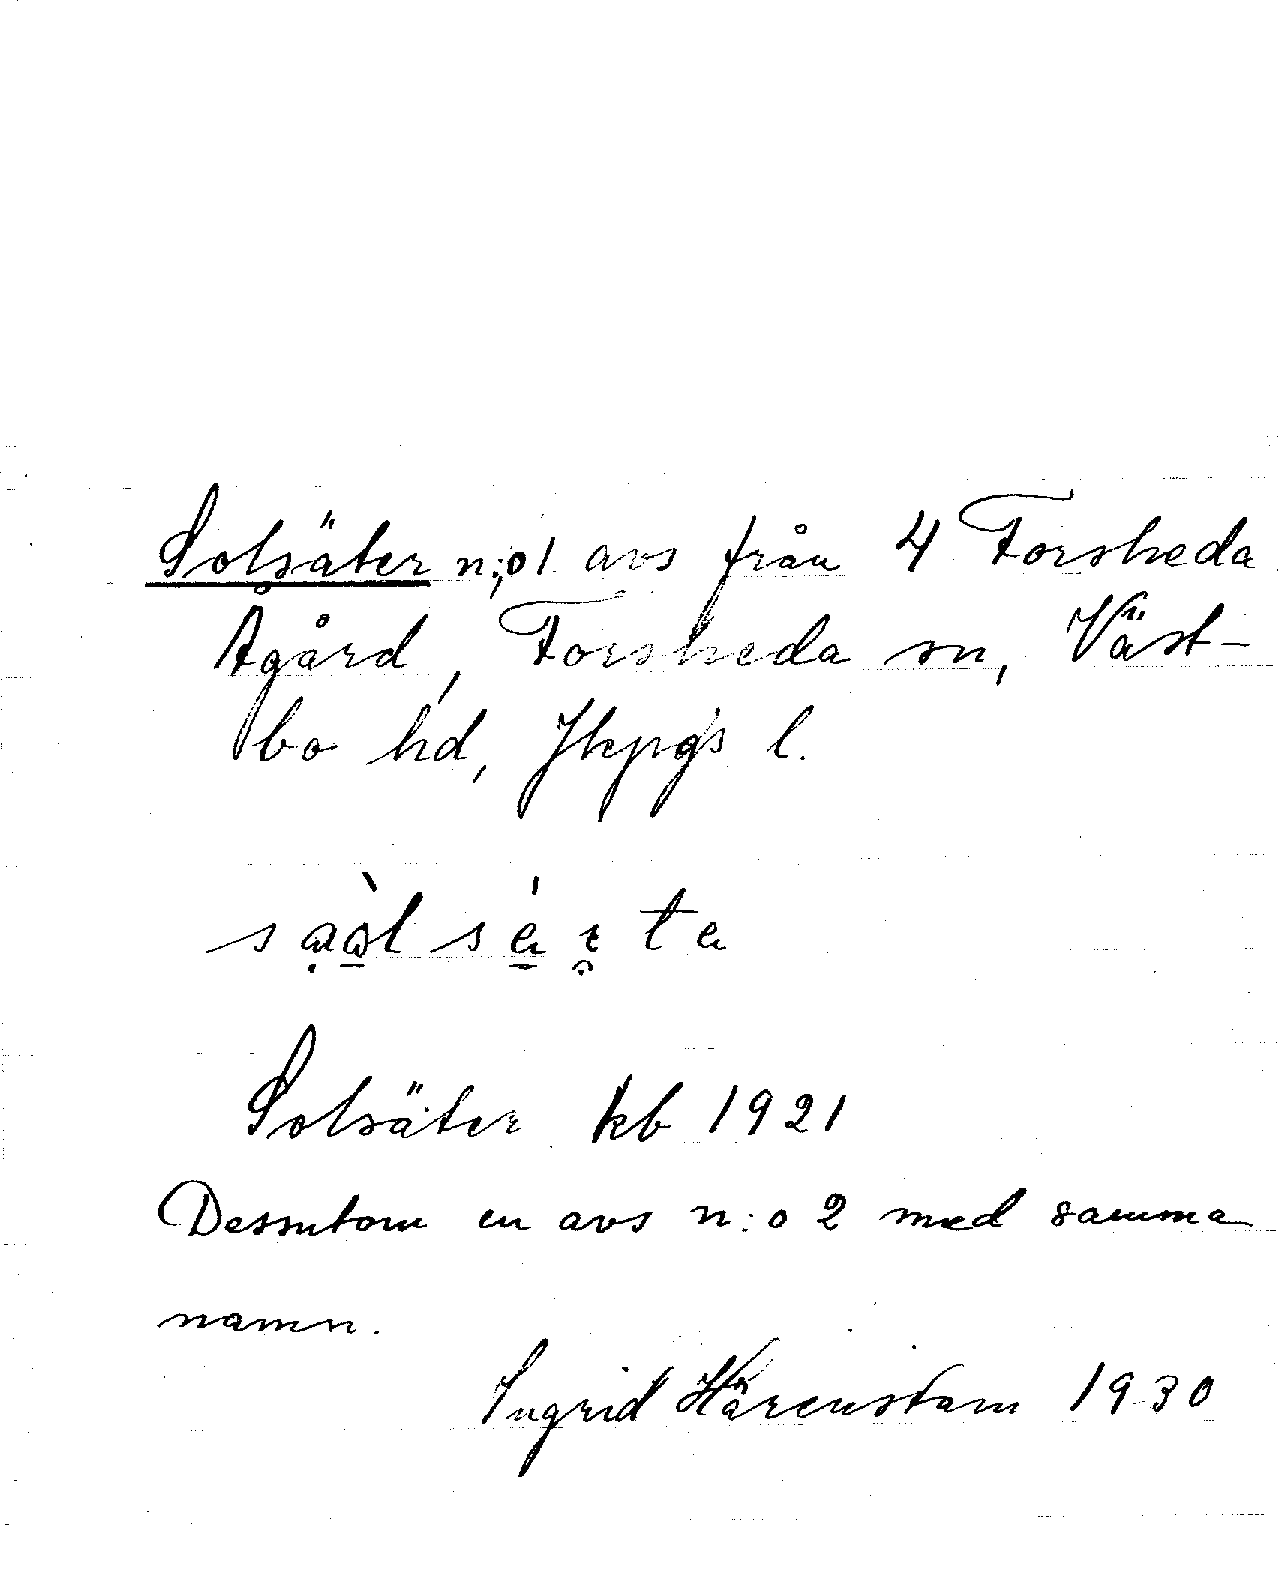 Solsäter n:o 1 avs från 4 Forsheda
Ågård, Forsheda sn, Väst-
bo hd, Jkpgs l.
Solsäter kb 1921
Dessutom en avs n:o 2 med samma
namn.
Ingrid Härenstam 1930